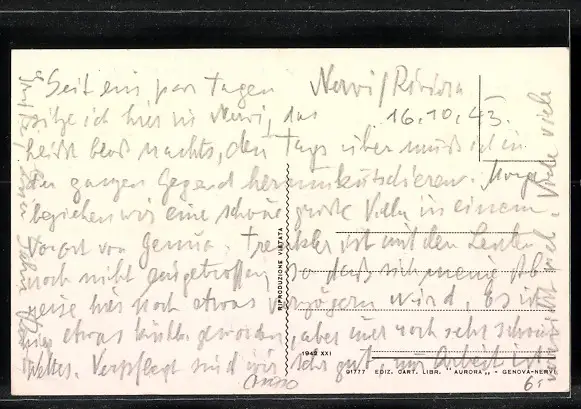 Seit ein par Tagen Nervi/Riviera
sitze ich hier in Nervi, das 16.10.43.
heißt bloß nachts, den Tags über muß ich in
der ganzen Gegend herumkutschieren. Morgen
beziehen wir eine schöne große Villa in einem
Vorort von Genua. ist mit den Leuten
noch nicht eingetroffen so daß sich meine Ab
reise hier noch etwas verzögern wird. Es ist
etwas kühler geworden, aber immer noch sehr schönes
Wetter. Verpflegt sind wir sehr gut, nur Arbeit ist
viele
RIPRODUZIONE VIETATA
1942 XXI
91777 EDIZ. CART. LIBR. "AURORA" - GENOVA-NERVI